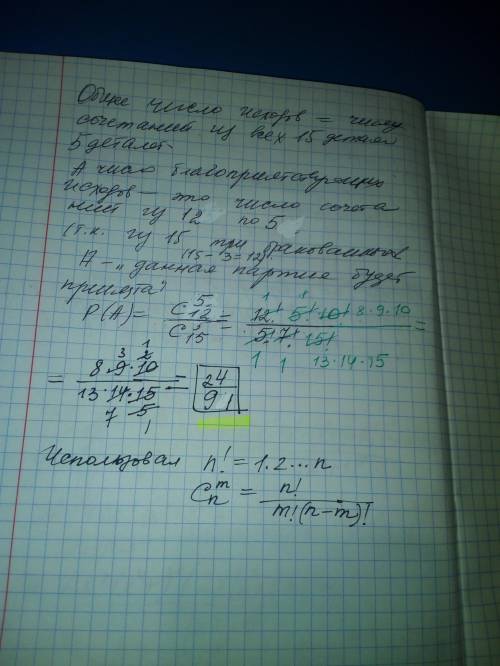 Общее число исходов = числу
сочетаний из всех 15 деталей
5 деталей.
А число благоприятствующих
исходов — это число сочета
ний из 12 по 5
(т.к. из 15 три бракованных
15 - 3 = 12)
А - „данная партия будет
принята"
P(A) = C₁₂⁵ / C₁₅⁵ = 12! 5! 10! 8·9·10 / 5! 7! 15! 13·14·15 =
= 8·9·10 / 13·14·15 = 24/91
Использовал n! = 1·2...n
Cₙᵐ = n! / m!(n-m)!